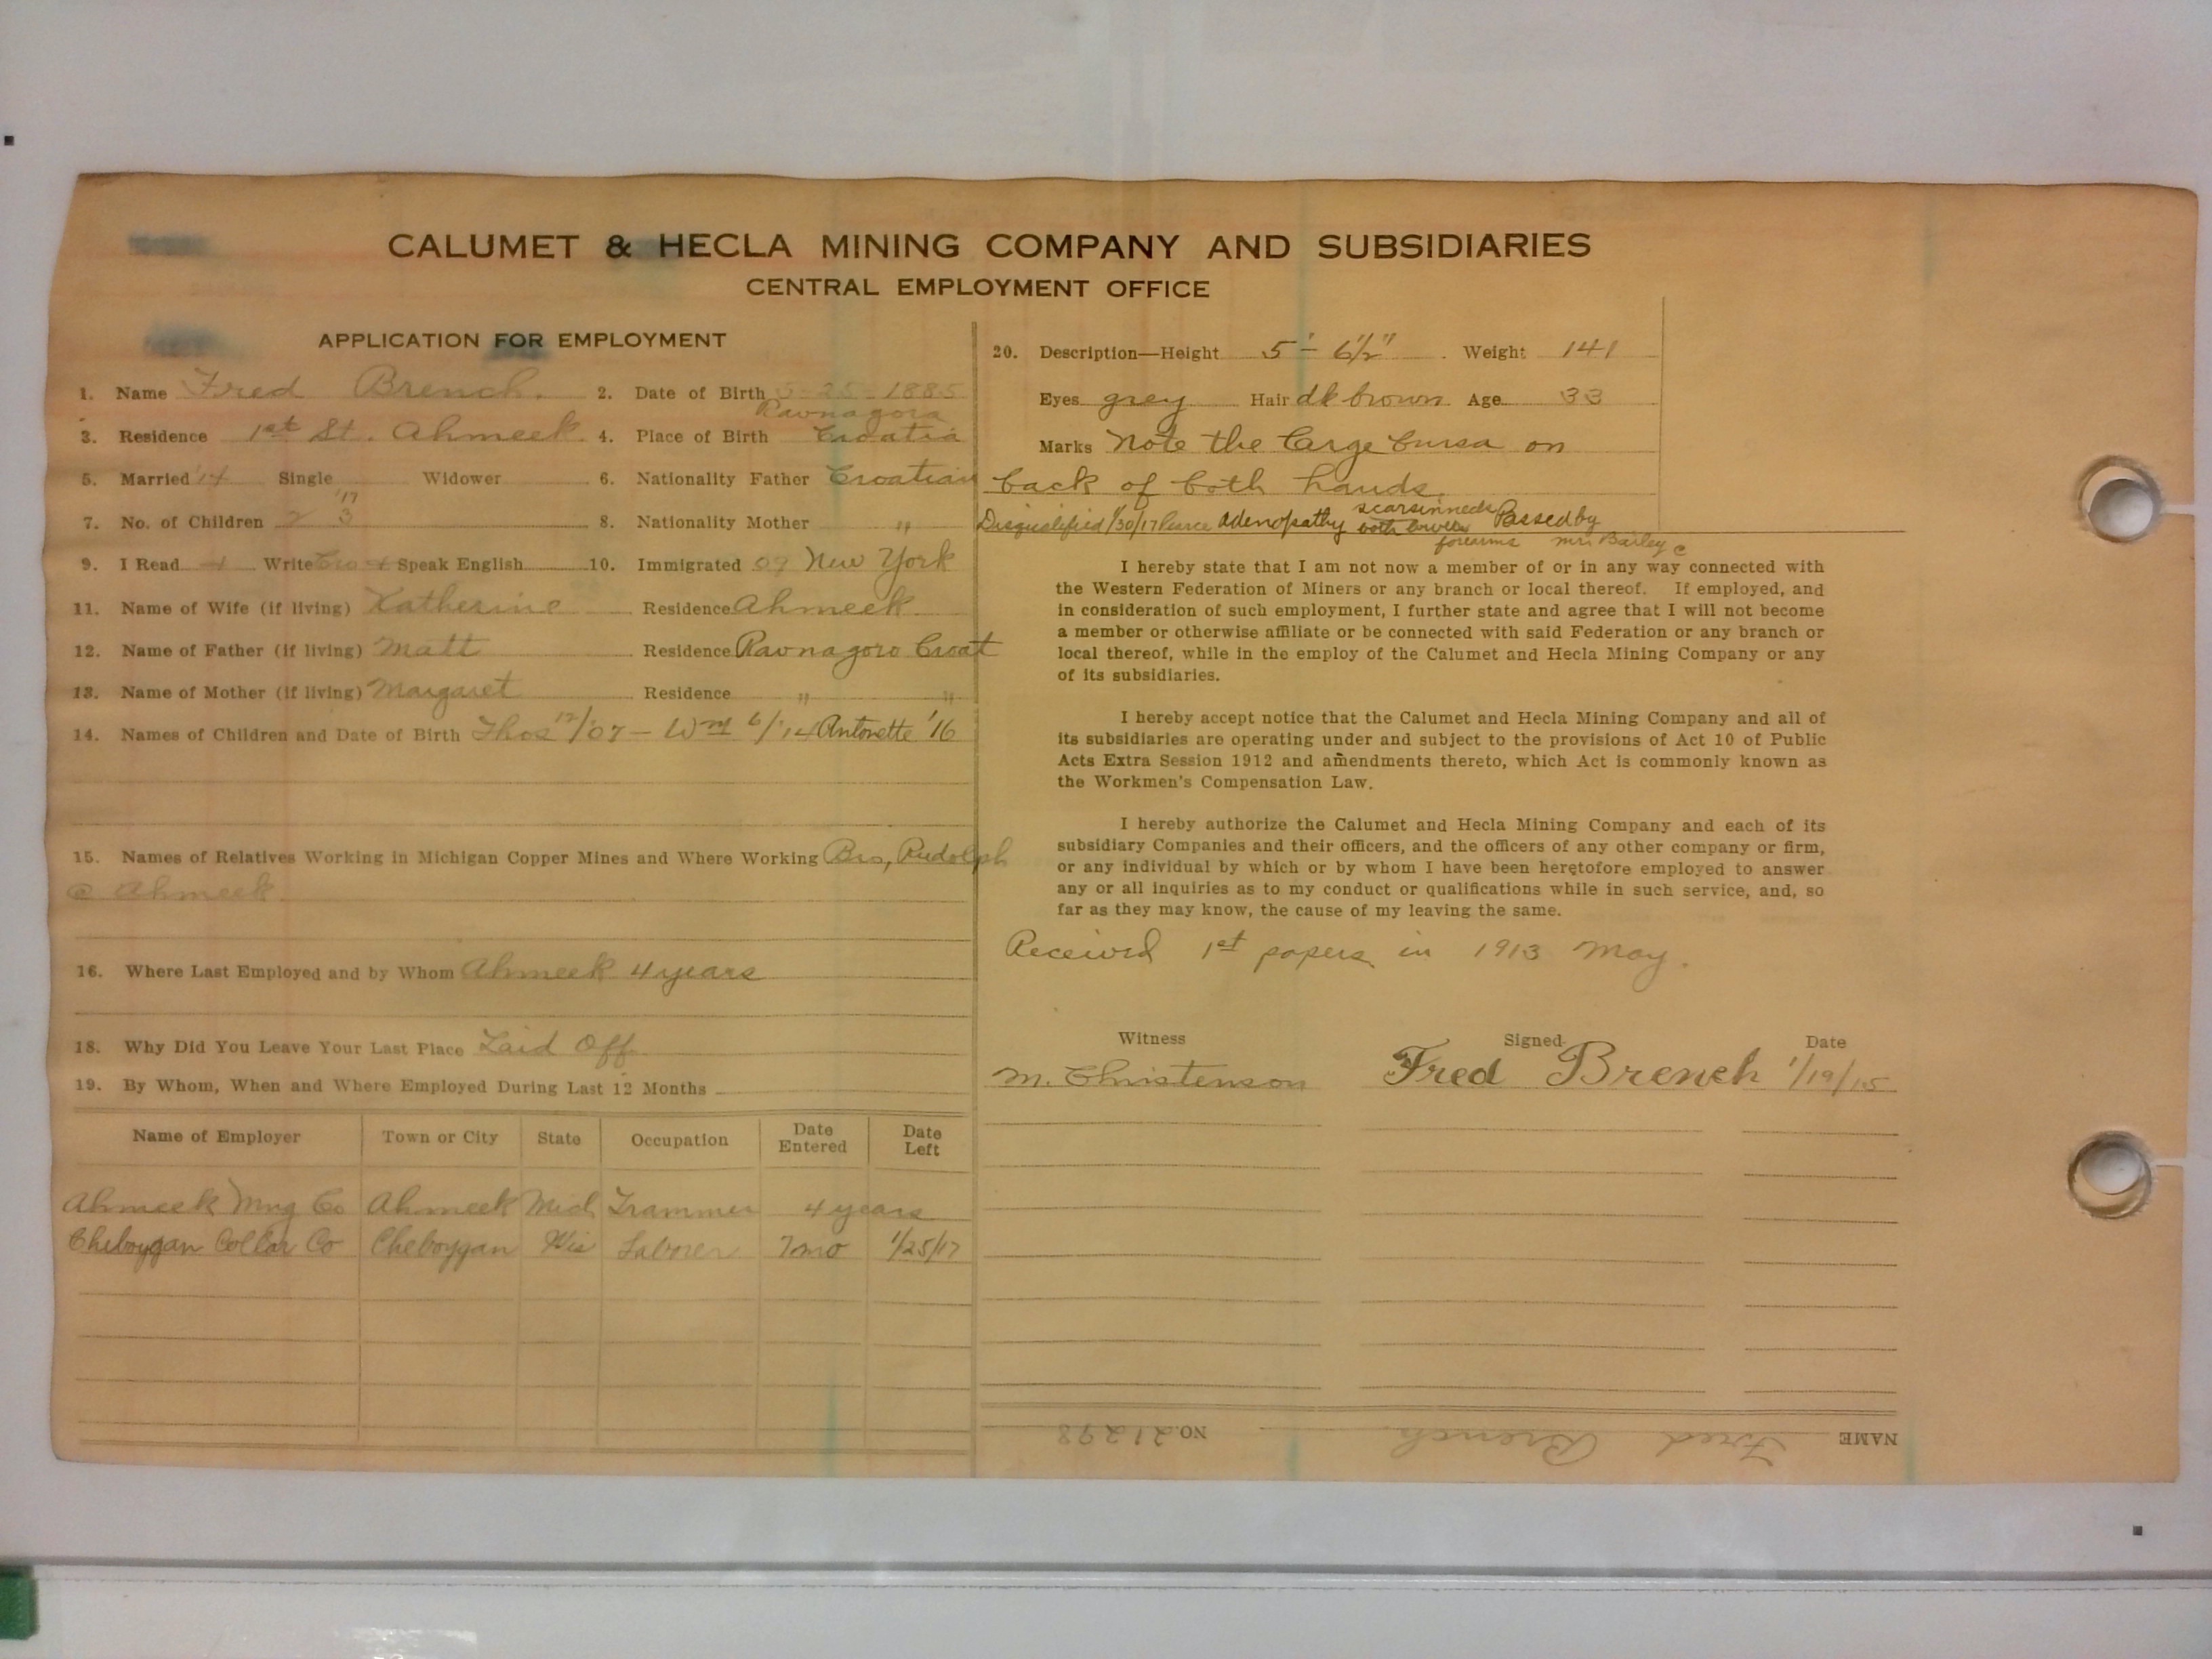 CALUMET & HECLA MINING COMPANY AND SUBSIDIARIES
CENTRAL EMPLOYMENT OFFICE
APPLICATION FOR EMPLOYMENT
1. Name Fred Brench. 2. Date of Birth 5-25-1885
Ravnagora
3. Residence 1st St. Ahmeek. 4. Place of Birth Croatia
5. Married Single Widower 6. Nationality Father Croatian
'17
7. No. of Children 2 3 8. Nationality Mother "
9. I Read + Write Cro + Speak English 10. Immigrated 09 New York
11. Name of Wife (if living) Katherine Residence Ahmeek
12. Name of Father (if living) Matt Residence Ravnagoro Croat
13. Name of Mother (if living) Margaret Residence " "
14. Names of Children and Date of Birth Thos 12/07 - Wm 6/14 Antonette '16
15. Names of Relatives Working in Michigan Copper Mines and Where Working Bro, Rudolph
@ Ahmeek
16. Where Last Employed and by Whom Ahmeek 4 years
18. Why Did You Leave Your Last Place Laid Off
19. By Whom, When and Where Employed During Last 12 Months
Name of Employer Town or City State Occupation Date Entered Date Left
Ahmeek Mng Co Ahmeek Mich Trammer 4 years
Cheboygan Collar Co Cheboygan Wis Laborer 7 mo 1/25/17
20. Description—Height 5'- 6½" Weight 141
Eyes grey Hair dk brown Age 33
Marks Note the large bursa on
back of both hands
Disqualified 1/30/17 Adenopathy scars in neck Passed by
both forearms Mr. Bailey
I hereby state that I am not now a member of or in any way connected with
the Western Federation of Miners or any branch or local thereof. If employed, and
in consideration of such employment, I further state and agree that I will not become
a member or otherwise affiliate or be connected with said Federation or any branch or
local thereof, while in the employ of the Calumet and Hecla Mining Company or any
of its subsidiaries.
I hereby accept notice that the Calumet and Hecla Mining Company and all of
its subsidiaries are operating under and subject to the provisions of Act 10 of Public
Acts Extra Session 1912 and amendments thereto, which Act is commonly known as
the Workmen's Compensation Law.
I hereby authorize the Calumet and Hecla Mining Company and each of its
subsidiary Companies and their officers, and the officers of any other company or firm,
or any individual by which or by whom I have been heretofore employed to answer
any or all inquiries as to my conduct or qualifications while in such service, and, so
far as they may know, the cause of my leaving the same.
Received 1st papers in 1913 May.
Witness Signed Date
M. Christenson Fred Brench 1/19/15
NAME Fred Brench NO. 21298